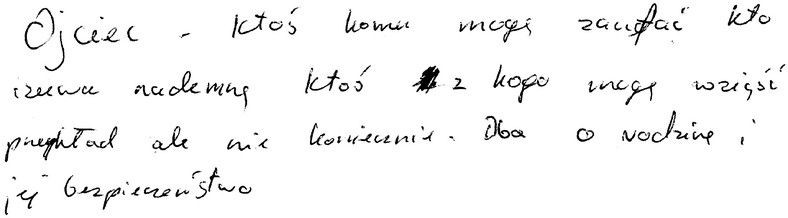 Ojciec - Ktoś komu mogę zaufać kto
czuwa nademną Ktoś z kogo mogę wziąść
przykład ale nie koniecznie. Dba o rodzinę i
jej bezpieczeństwo